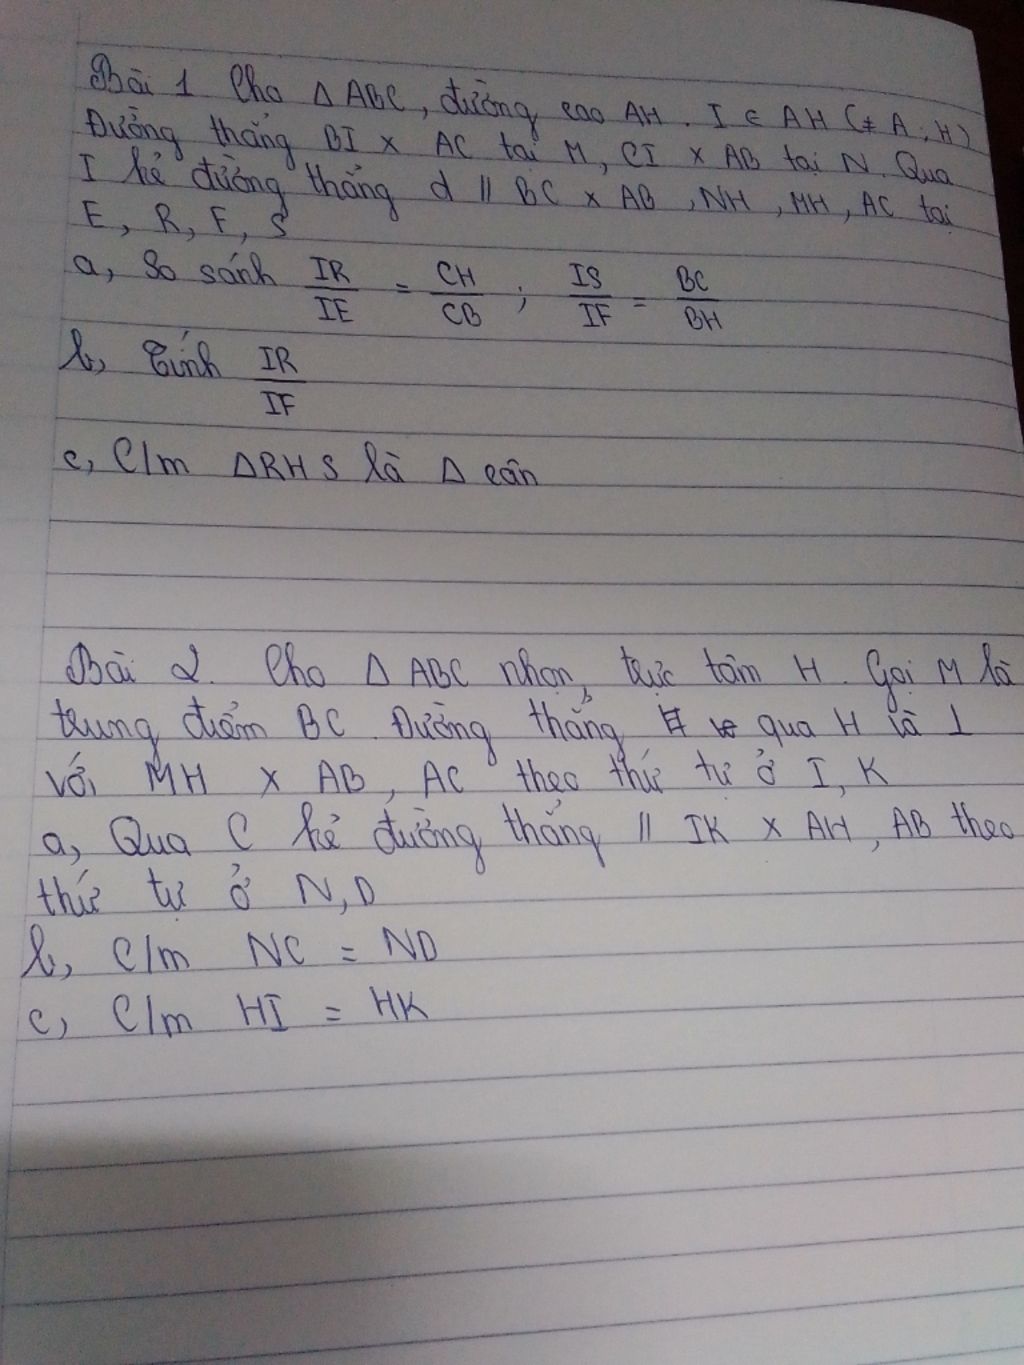 Bài 1 Cho Δ ABC, đường cao AH. I ∈ AH (≠ A; H)
Đường thẳng BI x AC tại M, CI x AB tại N. Qua
I kẻ đường thẳng d // BC x AB, NH, MH, AC tại
E, R, F, S
a, So sánh IR/IE = CH/CB ; IS/IF = BC/BH
b, Tính IR/IF
c, C/m ΔRHS là Δ cân
Bài 2. Cho Δ ABC nhọn, trực tâm H. Gọi M là
trung điểm BC. Đường thẳng qua H là ⊥
với MH x AB, AC theo thứ tự ở I, K
a, Qua C kẻ đường thẳng // IK x AH, AB theo
thứ tự ở N, D
b, C/m NC = ND
c, C/m HI = HK